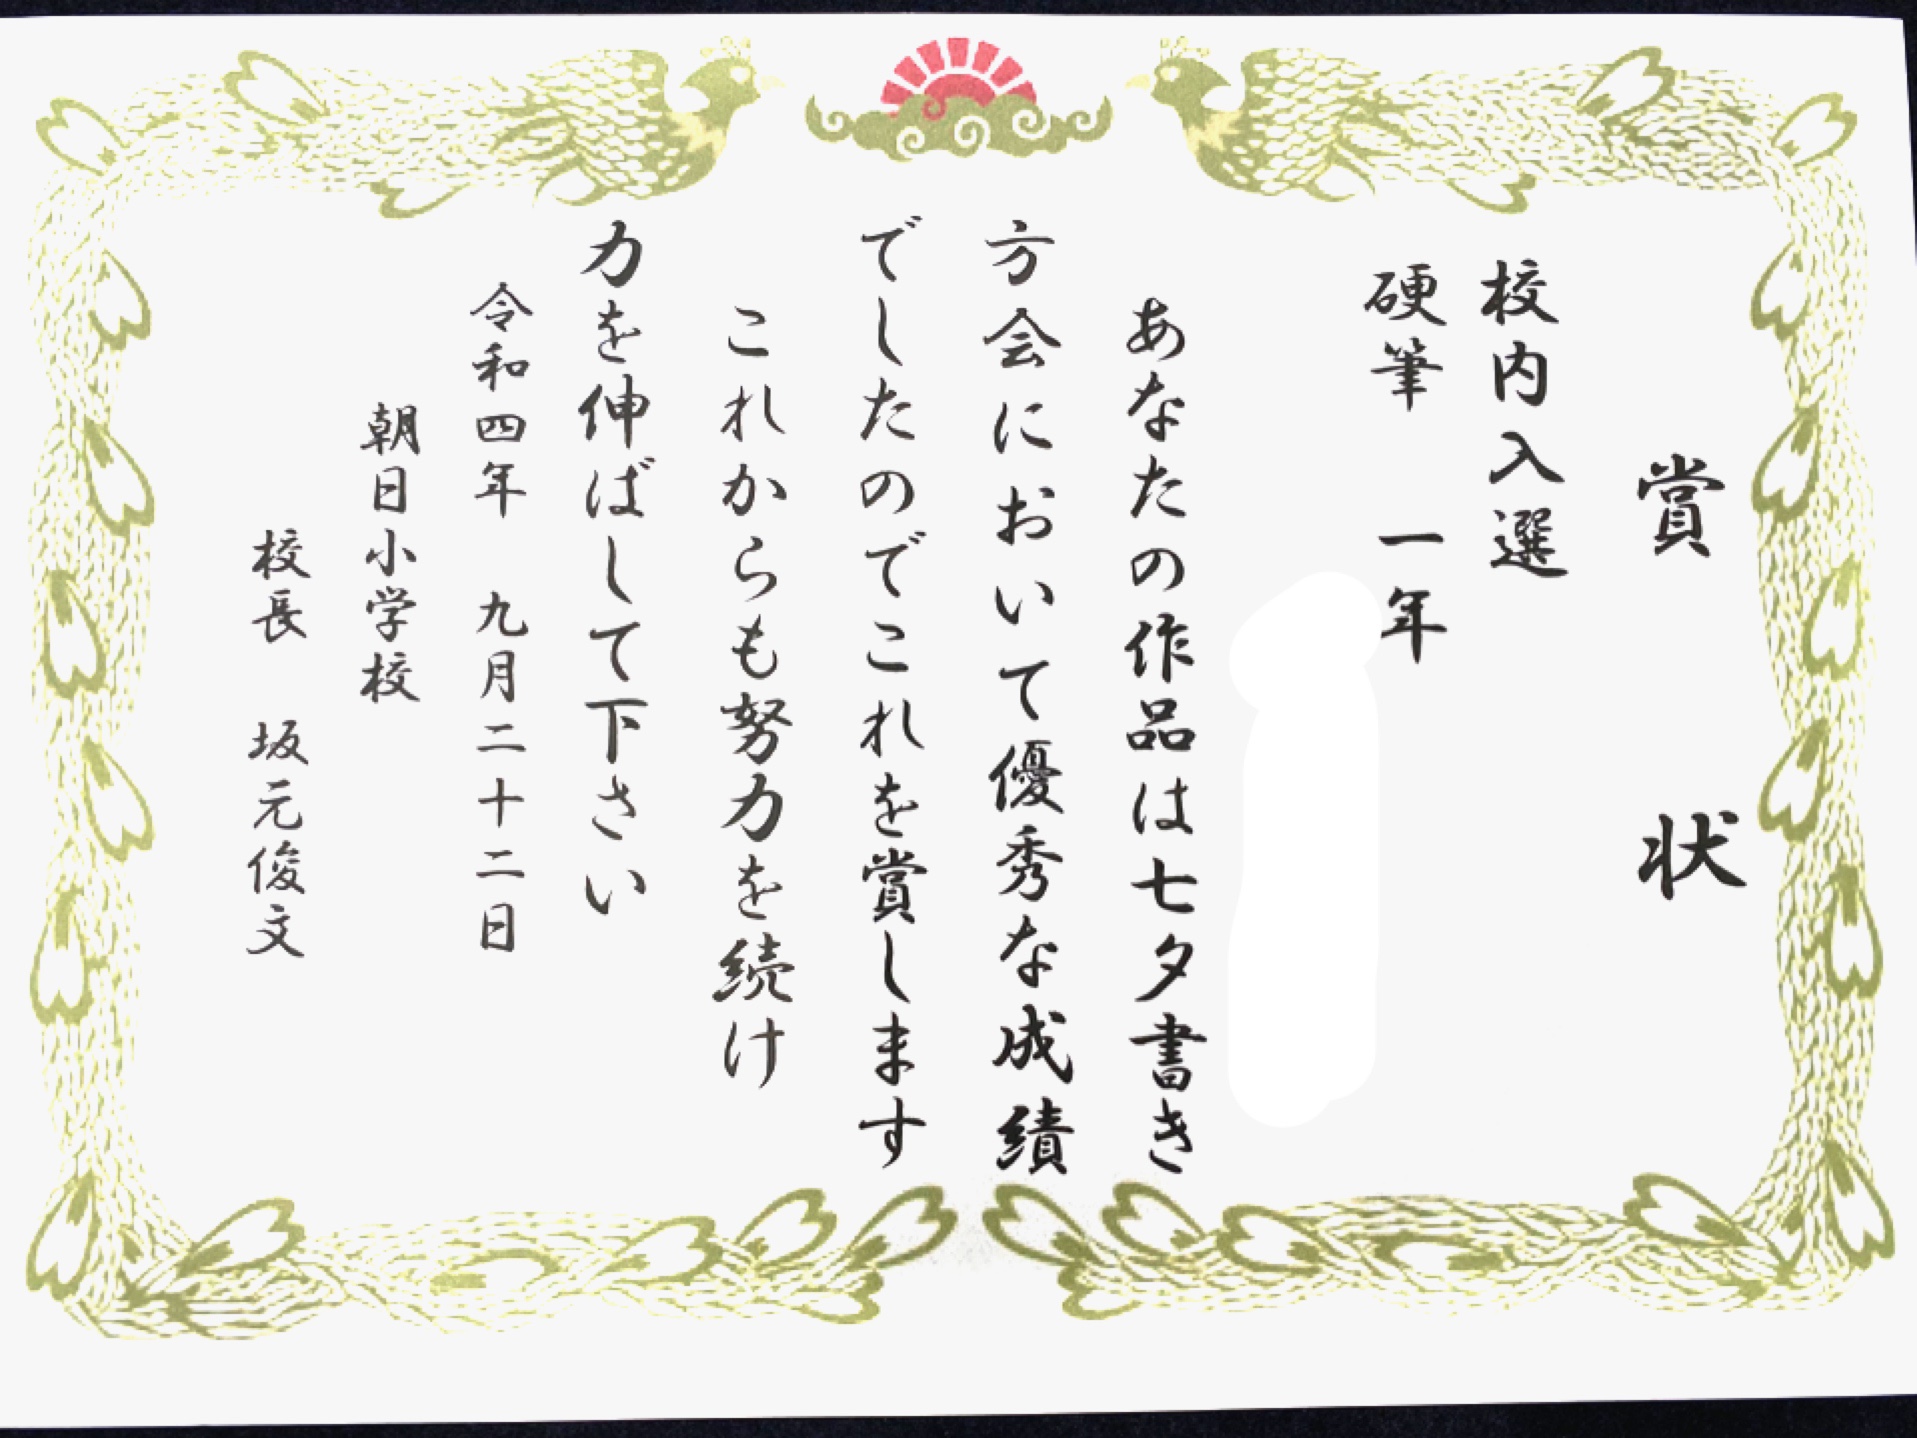 賞状
校内入選
硬筆　一年
あなたの作品は七夕書き
方会において優秀な成績
でしたのでこれを賞します
これからも努力を続け
力を伸ばして下さい
令和四年　九月二十二日
朝日小学校
校長　坂元俊文